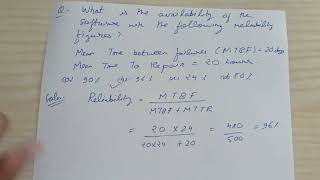 Q- What is the availability of the
software with the following reliability
figures?
Mean Time between failures (MTBF) = 20 days
Mean Time To Repair = 20 hours
(a) 90% (b) 96% (c) 24% (d) 50%
Soln. Reliability = MTBF
MTBF + MTTR
= 20 x 24 = 480 = 96%
20x24 + 20 500